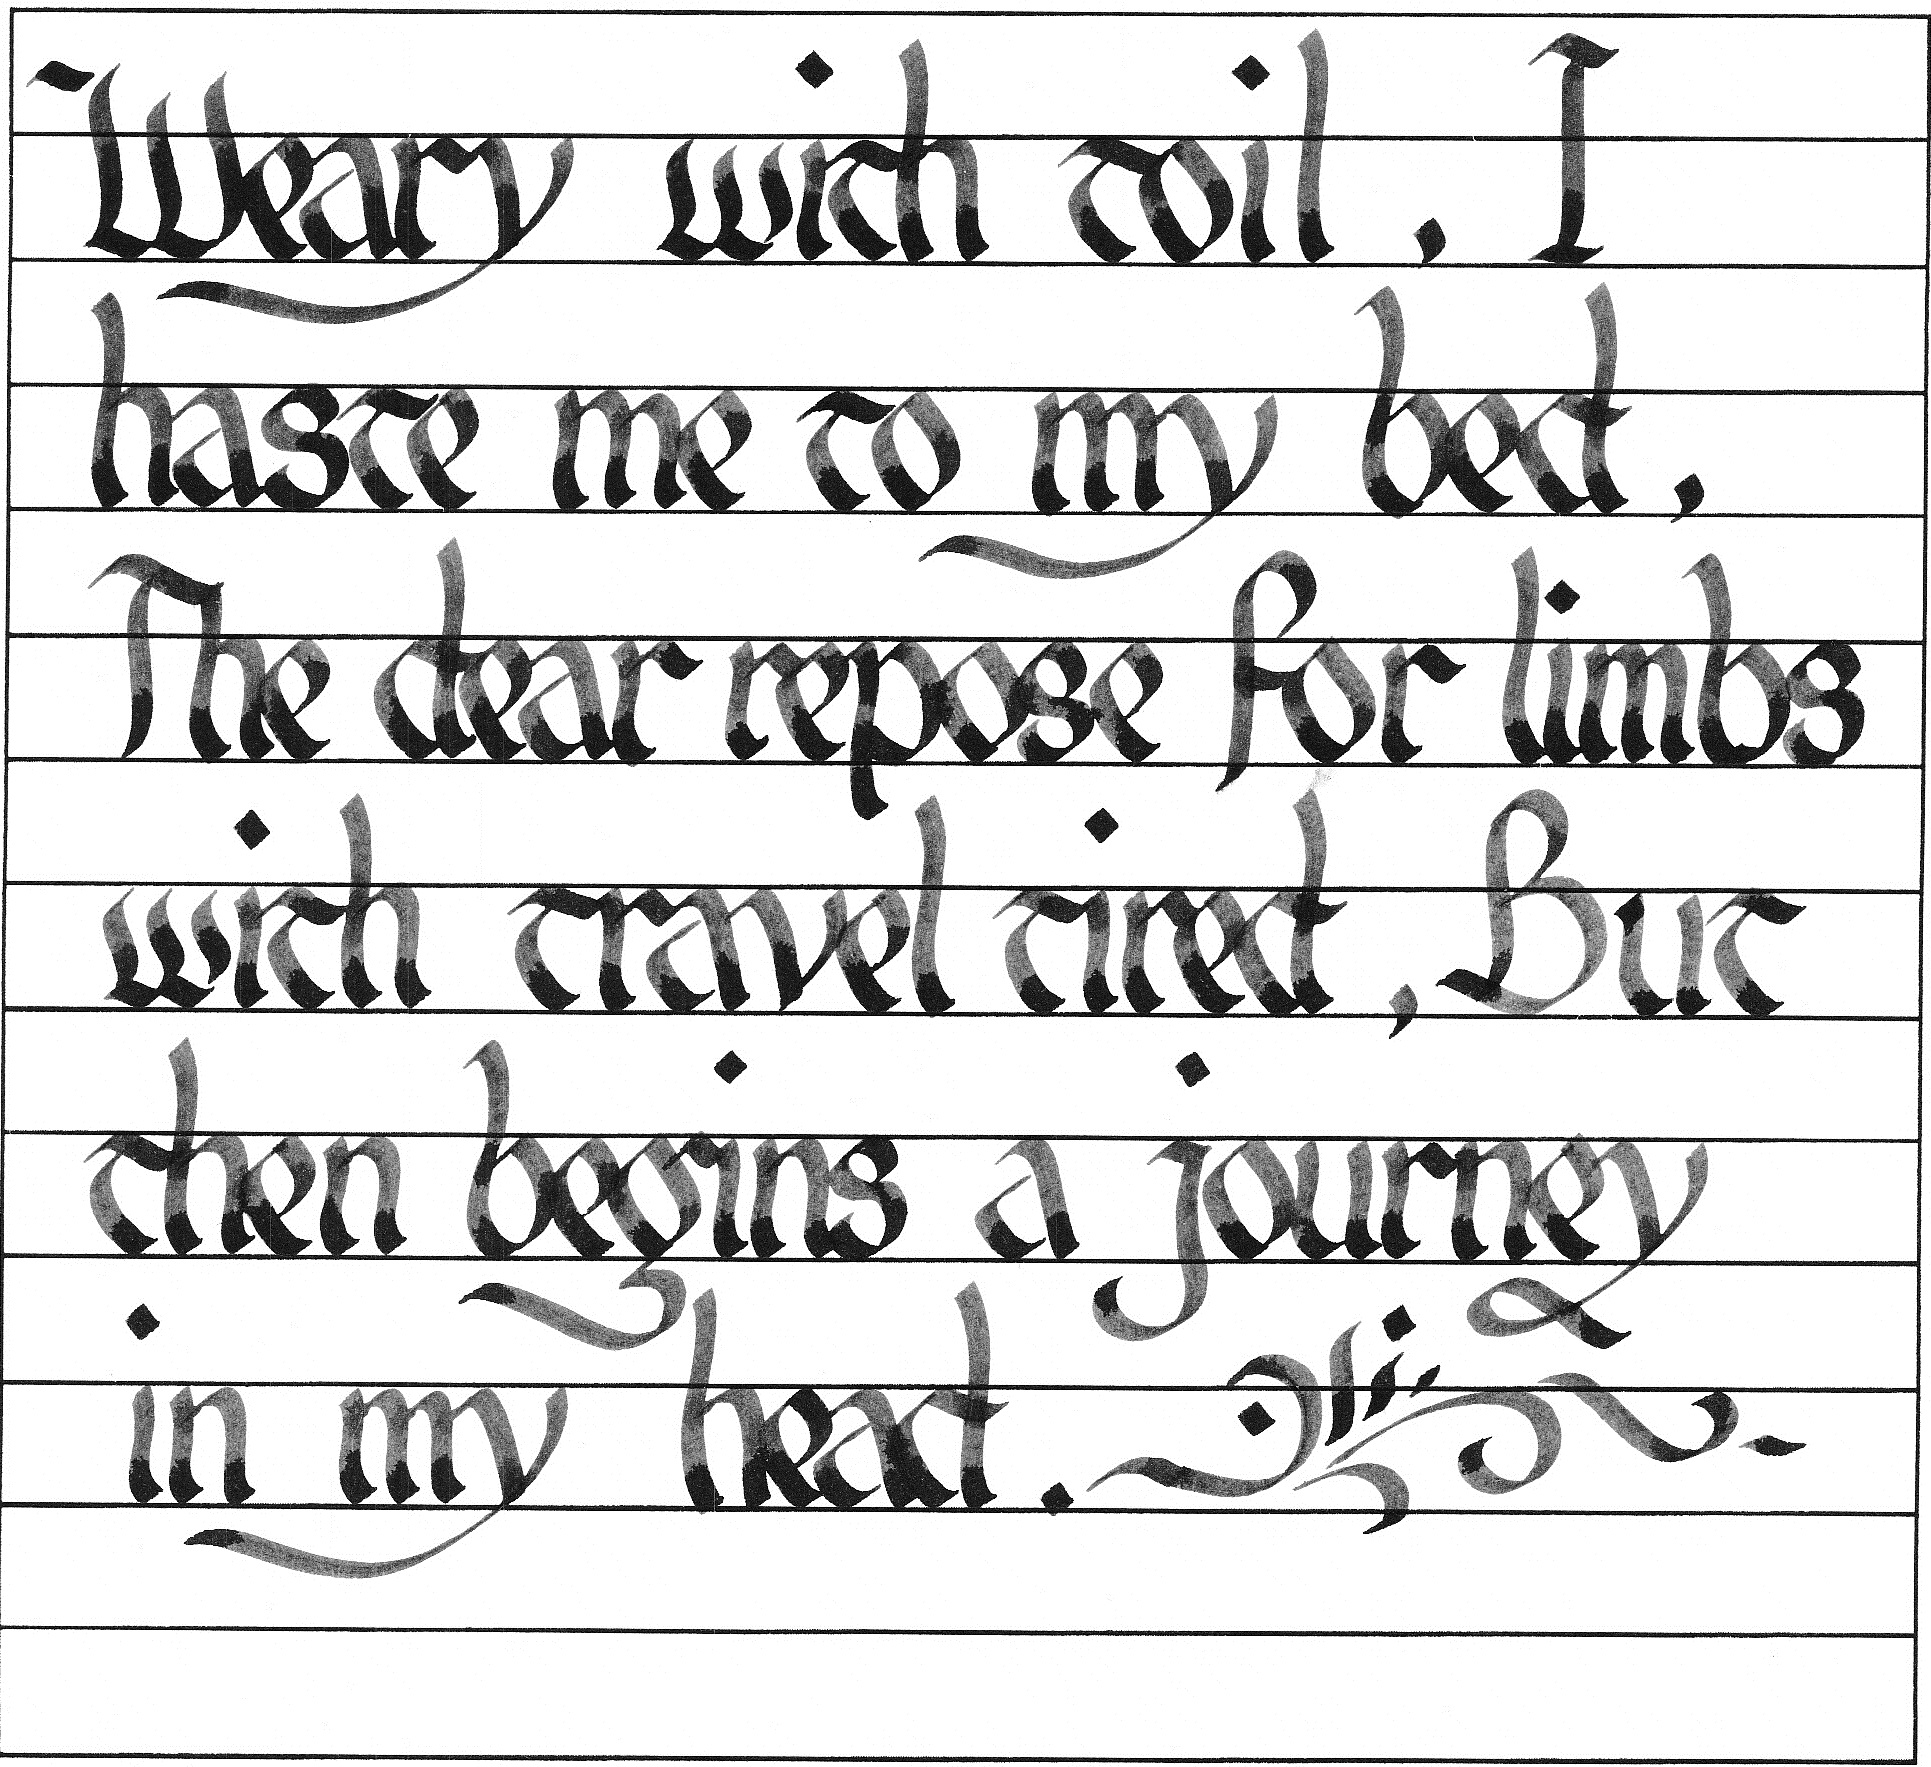 Weary with toil, I
haste me to my bed,
The dear repose for limbs
with travel tired, But
then begins a journey
in my head.